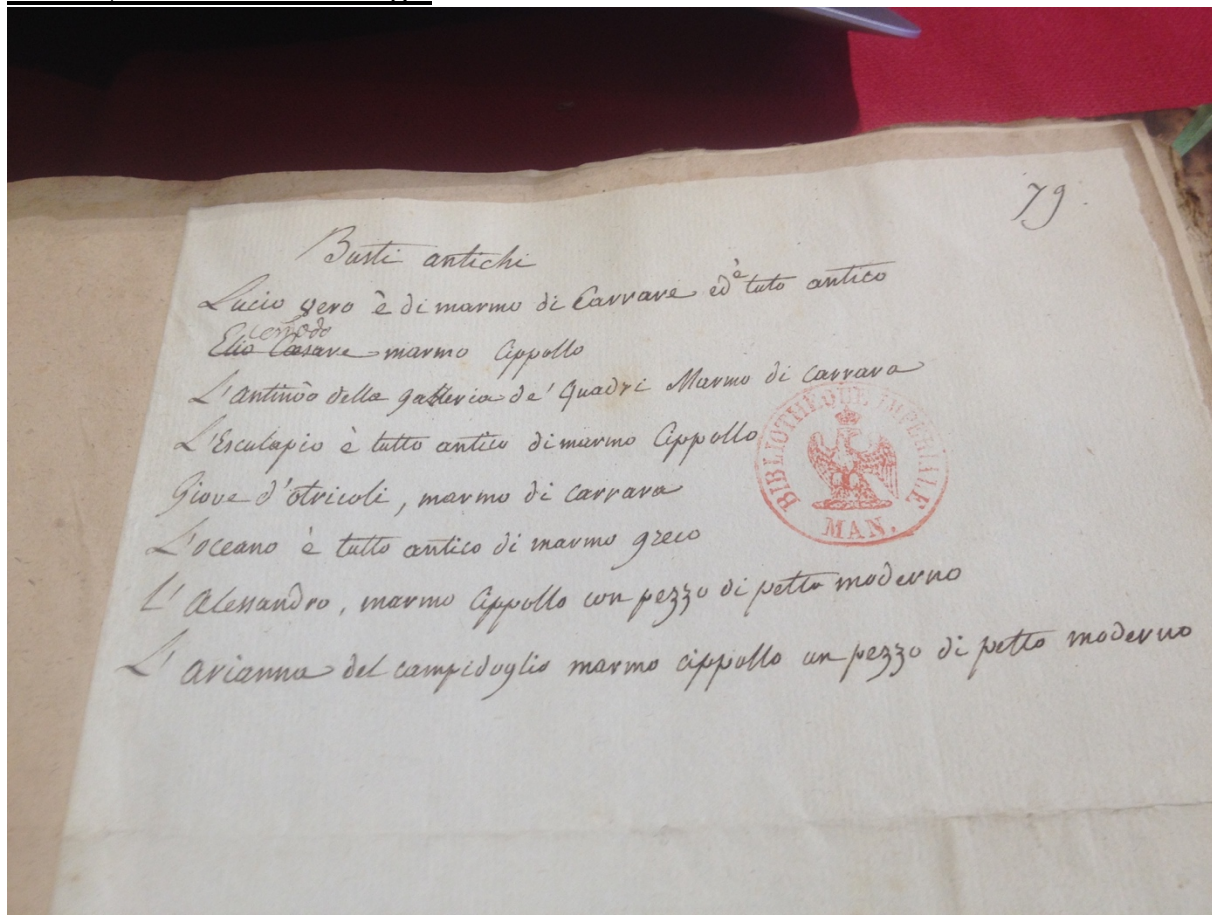 79.
Busti antichi
Lucio Vero è di marmo di Carrare ed è tuto antico
Comodo
Elio Cesare marmo Cippollo
L'Antinòo della galleria de' Quadri Marmo di Carrara
L'Esculapio è tutto antico di marmo Cippollo
Giove d'Otricoli, marmo di Carrara
L'Oceano è tutto antico di marmo greco
L'Alessandro, marmo Cippollo con pezzo di petto moderno
L'Arianna del Campidoglio marmo cippollo un pezzo di petto moderno
BIBLIOTHEQUE IMPERIALE
MAN.